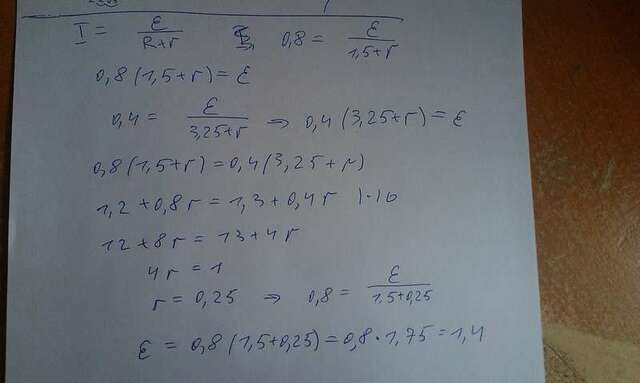 I = ε/(R+r) 0,8 = ε/(1,5+r)
0,8(1,5+r) = ε
0,4 = ε/(3,25+r) ⇒ 0,4(3,25+r) = ε
0,8(1,5+r) = 0,4(3,25+r)
1,2 + 0,8r = 1,3 + 0,4r |·10
12 + 8r = 13 + 4r
4r = 1
r = 0,25 ⇒ 0,8 = ε/(1,5+0,25)
ε = 0,8(1,5+0,25) = 0,8·1,75 = 1,4